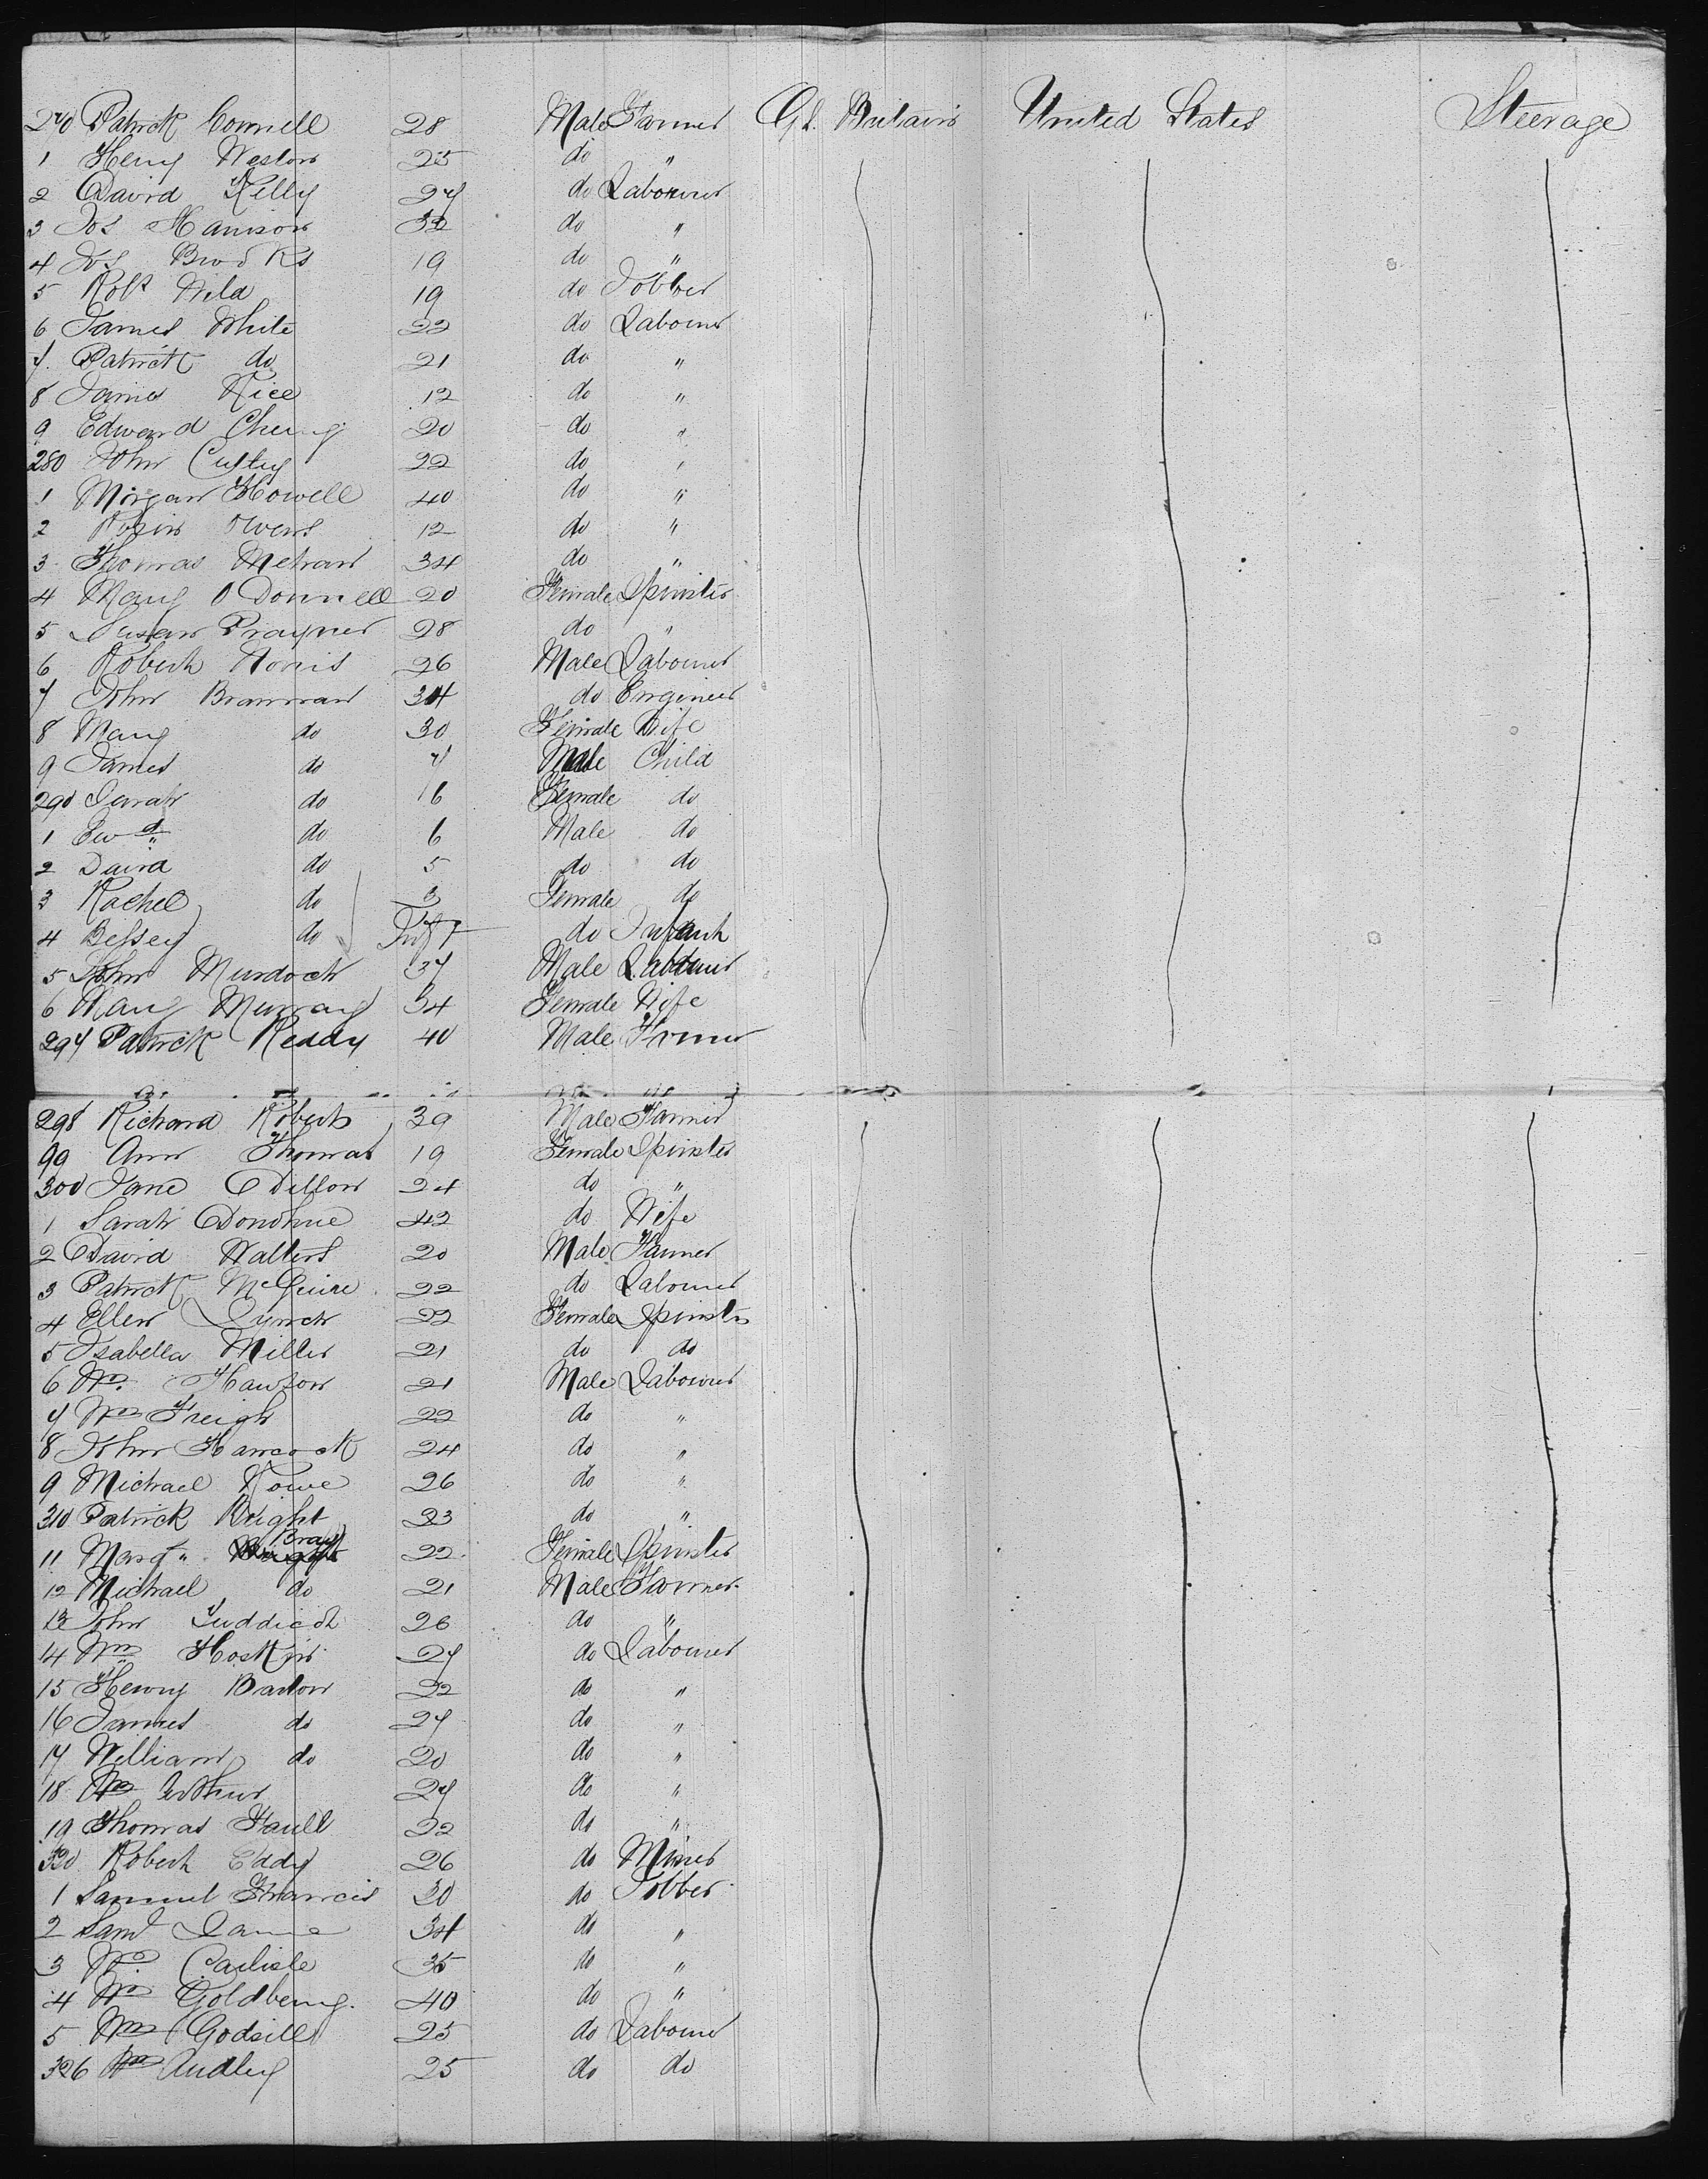 270 Patrick Connell 28 Male Farmer Gt. Britain United States Steerage
1 Henry Weston 25 do "
2 David Kelly 27 do Labourer
3 Jos Harrison 32 do "
4 Jos Brooks 19 do "
5 Robt Wild 19 do Jobber
6 James White 22 do Labourer
7 Patrick do 21 do "
8 James Rice 12 do "
9 Edward 20 do "
280 John 22 do "
1 Morgan Howell 40 do "
2 Owens 12 do "
3 Thomas Mehan 34 do "
4 Mary O Donnell 20 Female Spinster
5 Susan Prayner 28 do "
6 Robert Norris 26 Male Labourer
7 John Brannan 34 do Engineer
8 Mary do 30 Female Wife
9 James do 7 Male Child
290 Sarah do 16 Female do
1 Ewd do 6 Male do
2 David do 5 do do
3 Rachel do 3 Female do
4 Bessey do Inft do Infant
5 John Murdock 37 Male Labourer
6 Mary Murray 34 Female Wife
297 Patrick Reddy 40 Male Farmer
298 Richard Roberts 39 Male Farmer
99 Ann Thomas 19 Female Spinster
300 Jane Dillon 24 do "
1 Sarah Donohue 42 do Wife
2 David Walters 20 Male Farmer
3 Patrick McGuire 22 do Labourer
4 Ellen Lynch 22 Female Spinster
5 Isabella Miller 21 do do
6 Wm. 21 Male Labourer
7 Wm 22 do "
8 John Hancock 24 do "
9 Michael Rowe 26 do "
310 Patrick Wright 23 do "
11 Margt Bray 22 Female Spinster
12 Michael do 21 Male Farmer
13 John 26 do "
14 Wm Hoskin 27 do Labourer
15 Henry Barlow 22 do "
16 James do 27 do "
17 William do 20 do "
18 Wm Arthur 27 do "
19 Thomas Faull 22 do "
320 Robert Eddy 26 do Miner
1 Samuel Francis 30 do Jobber
2 Saml 34 do "
3 Wm. Carlisle 35 do "
4 Wm Goldberg. 40 do "
5 Wm Godsill 25 do Labourer
326 Wm Audley 25 do do